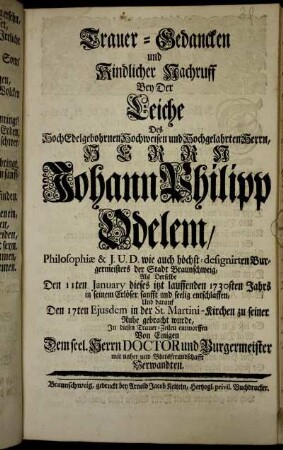 Trauer-Gedancken
und
Kindlicher Nachruff
Bey Der
Leiche
Des
HochEdelgebohrnen Hochweisen und Hochgelahrten Herrn,
HERRN
Johann Philipp
Odelem/
Philosophiæ & J. U. D. wie auch höchst-designirten Bur-
germeisters der Stadt Braunschweig,
Als Derselbe
Den 11ten January dieses itzt lauffenden 1730sten Jahrs
in seinem Erlöser sanfft und seelig entschlaffen,
Und darauf
Den 17ten Ejusdem in der St. Martini-Kirchen zu seiner
Ruhe gebracht wurde,
In diesen Trauer-Zeilen entworffen
Von Einigen
Dem seel. Herrn DOCTOR und Burgermeister
mit naher Blutsfreundschafft
Verwandten.
Braunschweig, gedruckt bey Arnold Jacob Keitel, Hertzogl. privil. Buchdrucker.